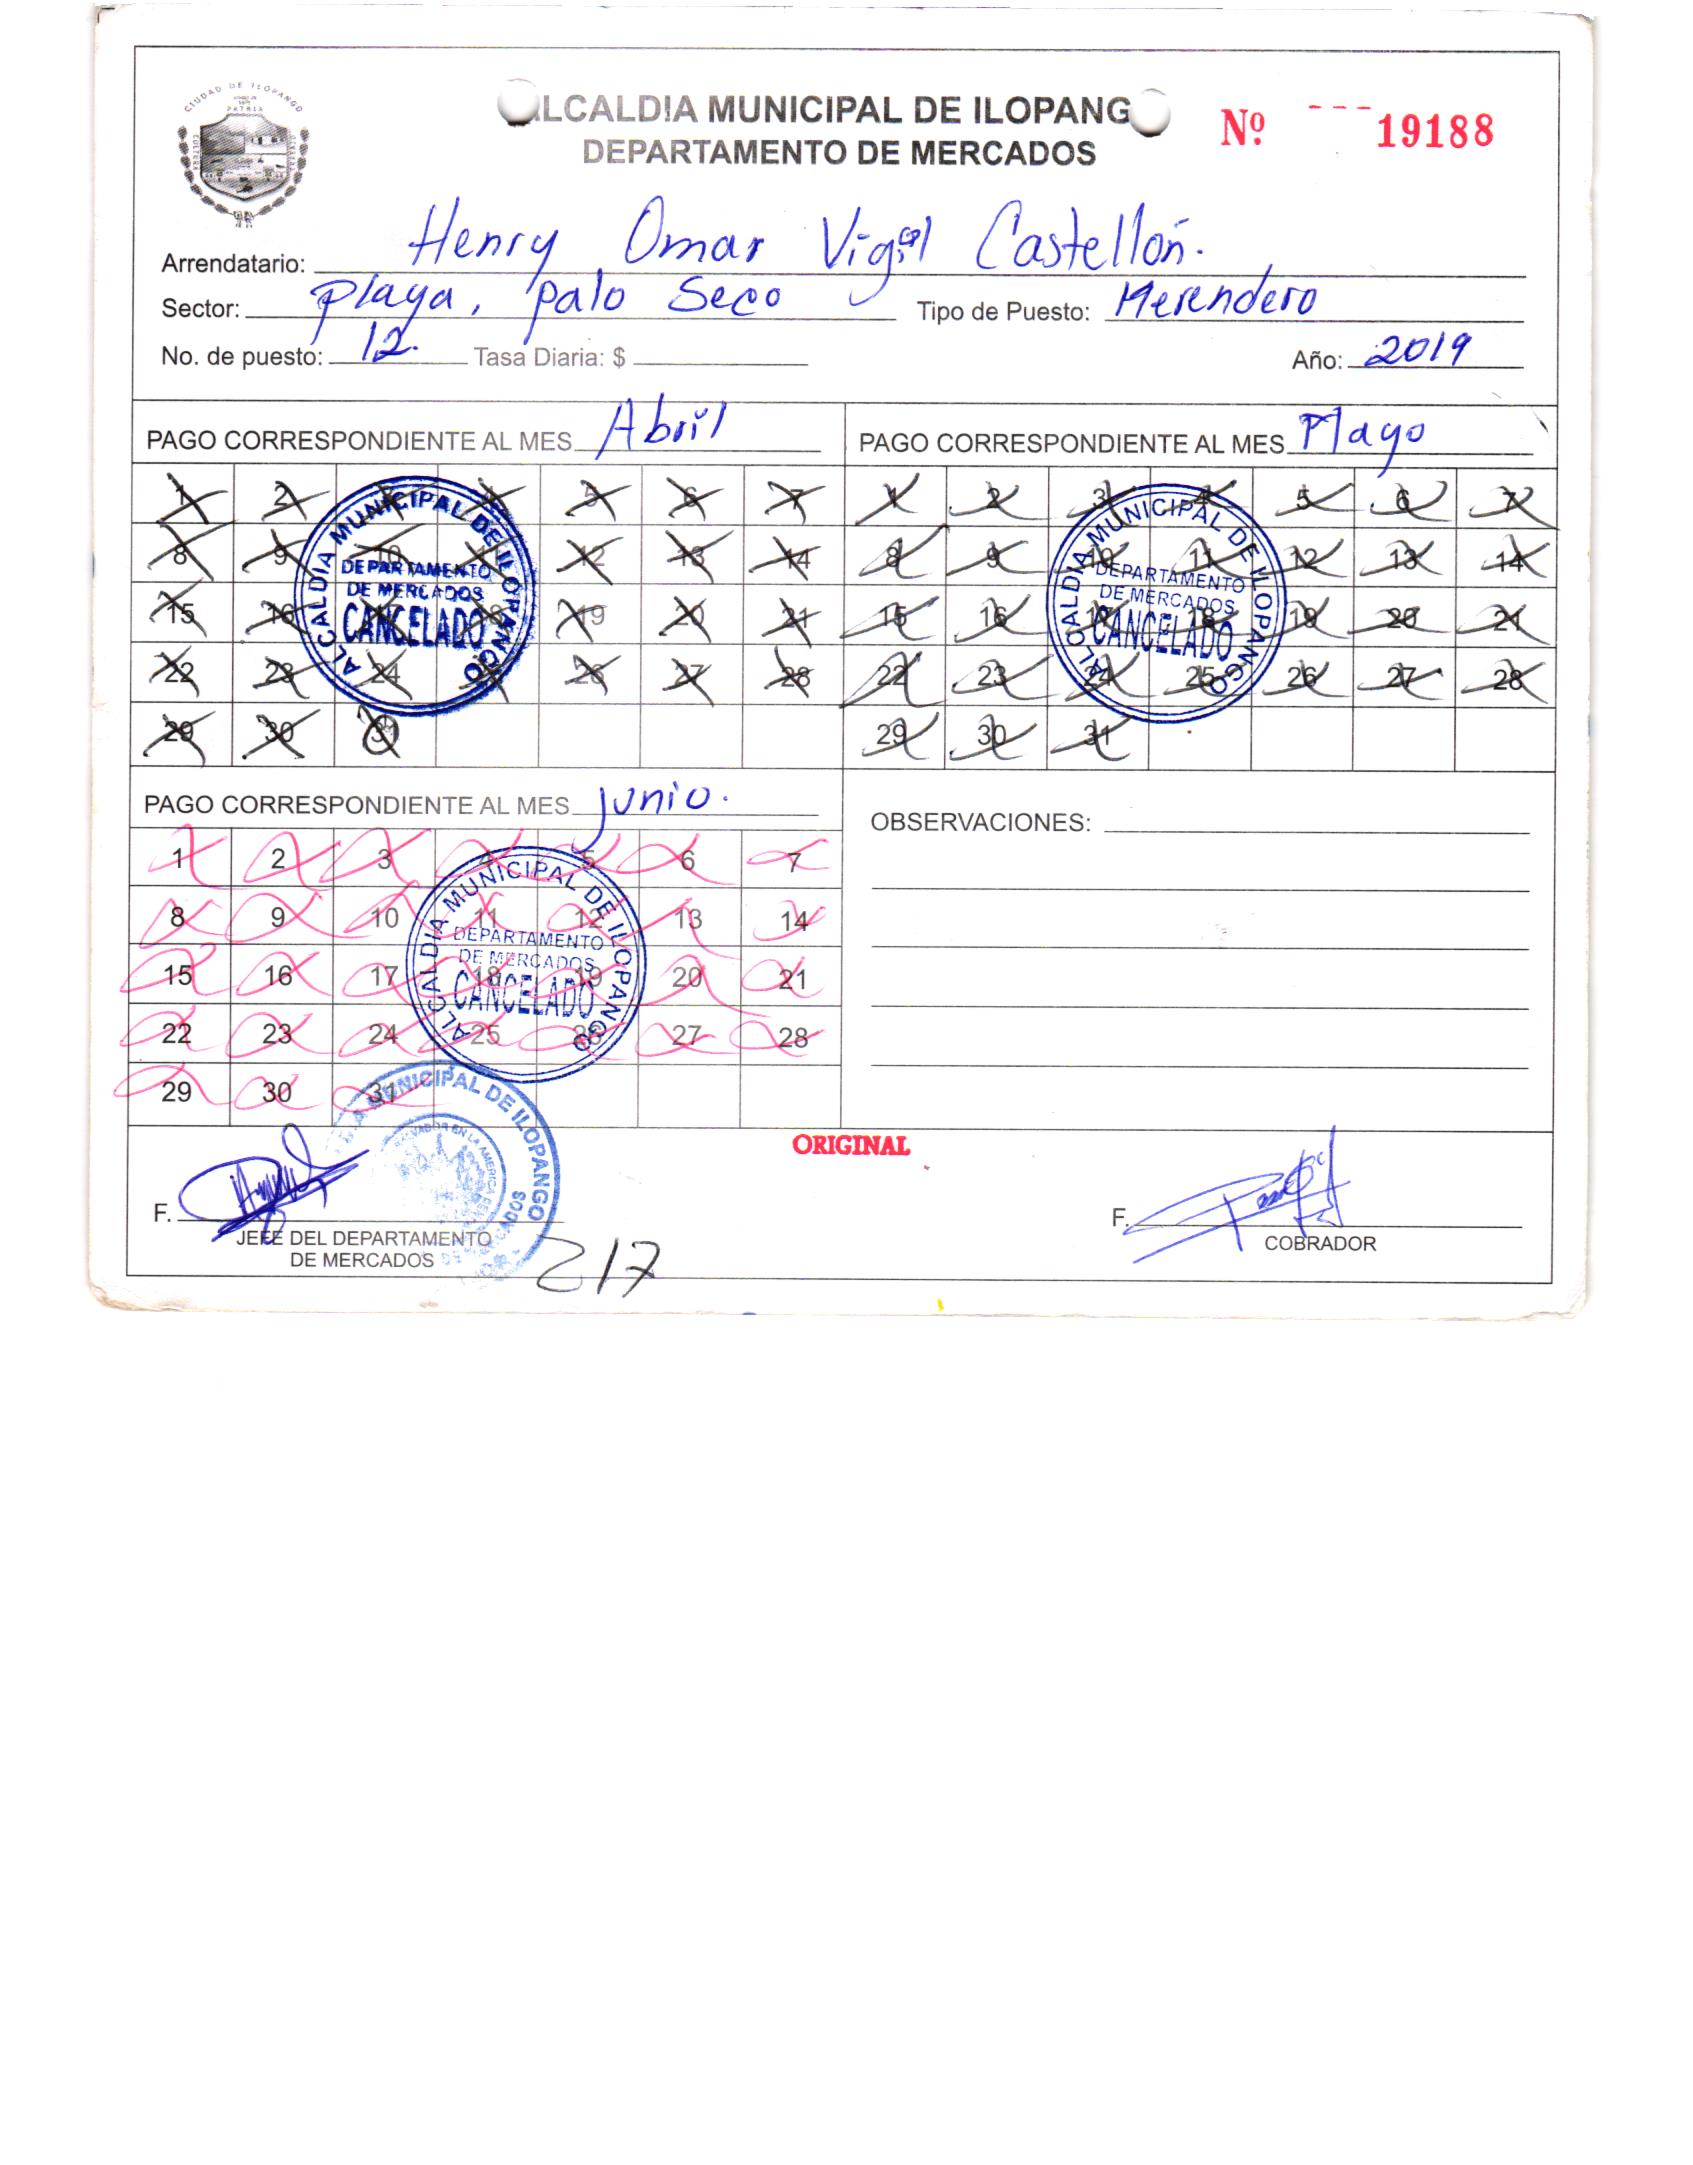 CIUDAD DE ILOPANGO
PATRIA
ALCALDIA MUNICIPAL DE ILOPANG
DEPARTAMENTO DE MERCADOS
Nº 19188
Arrendatario: Henry Omar Vigil Castellón.
Sector: Playa, palo Seco Tipo de Puesto: Merendero
No. de puesto: 12. Tasa Diaria: $ Año: 2019
PAGO CORRESPONDIENTE AL MES Abril
1 2 3 4 5 6 7
8 9 10 11 12 13 14
15 16 17 18 19 20 21
22 23 24 25 26 27 28
29 30 31
ALCALDIA MUNICIPAL DE ILOPANGO
DEPARTAMENTO
DE MERCADOS
CANCELADO
PAGO CORRESPONDIENTE AL MES Mayo
1 2 3 4 5 6 7
8 9 10 11 12 13 14
15 16 17 18 19 20 21
22 23 24 25 26 27 28
29 30 31
ALCALDIA MUNICIPAL DE ILOPANGO
DEPARTAMENTO
DE MERCADOS
CANCELADO
PAGO CORRESPONDIENTE AL MES junio.
1 2 3 4 5 6 7
8 9 10 11 12 13 14
15 16 17 18 19 20 21
22 23 24 25 26 27 28
29 30 31
ALCALDIA MUNICIPAL DE ILOPANGO
DEPARTAMENTO
DE MERCADOS
CANCELADO
OBSERVACIONES:
MUNICIPAL DE ILOPANGO
ORIGINAL
F.
JEFE DEL DEPARTAMENTO
DE MERCADOS
217
F.
COBRADOR